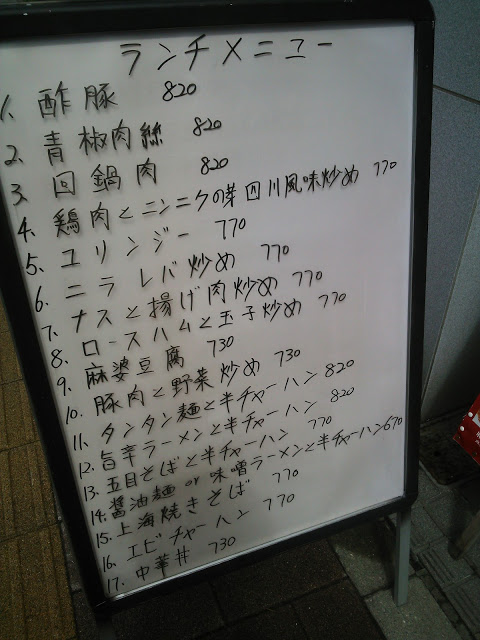 ランチメニュー
1. 酢豚 820
2. 青椒肉絲 820
3. 回鍋肉 820
4. 鶏肉とニンニクの芽四川風味炒め 770
5. ユリンジー 770
6. ニラレバ炒め 770
7. ナスと揚げ肉炒め 770
8. ロースハムと玉子炒め 770
9. 麻婆豆腐 730
10. 豚肉と野菜炒め 730
11. タンタン麺と半チャーハン 820
12. 旨辛ラーメンと半チャーハン 820
13. 五目そばと半チャーハン 770
14. 醤油麺 or 味噌ラーメンと半チャーハン 670
15. 上海焼きそば 770
16. エビチャーハン 770
17. 中華丼 730